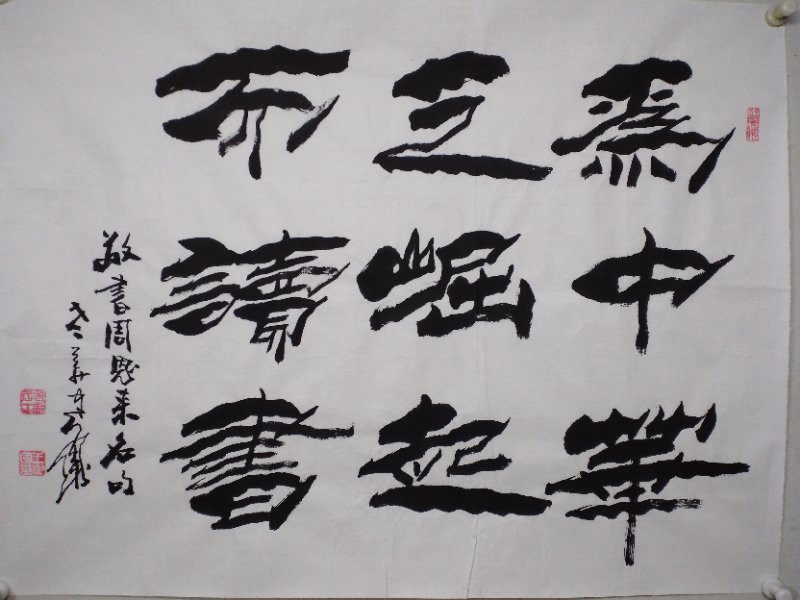 為中華
之崛起
而讀書
敬書周恩来名句